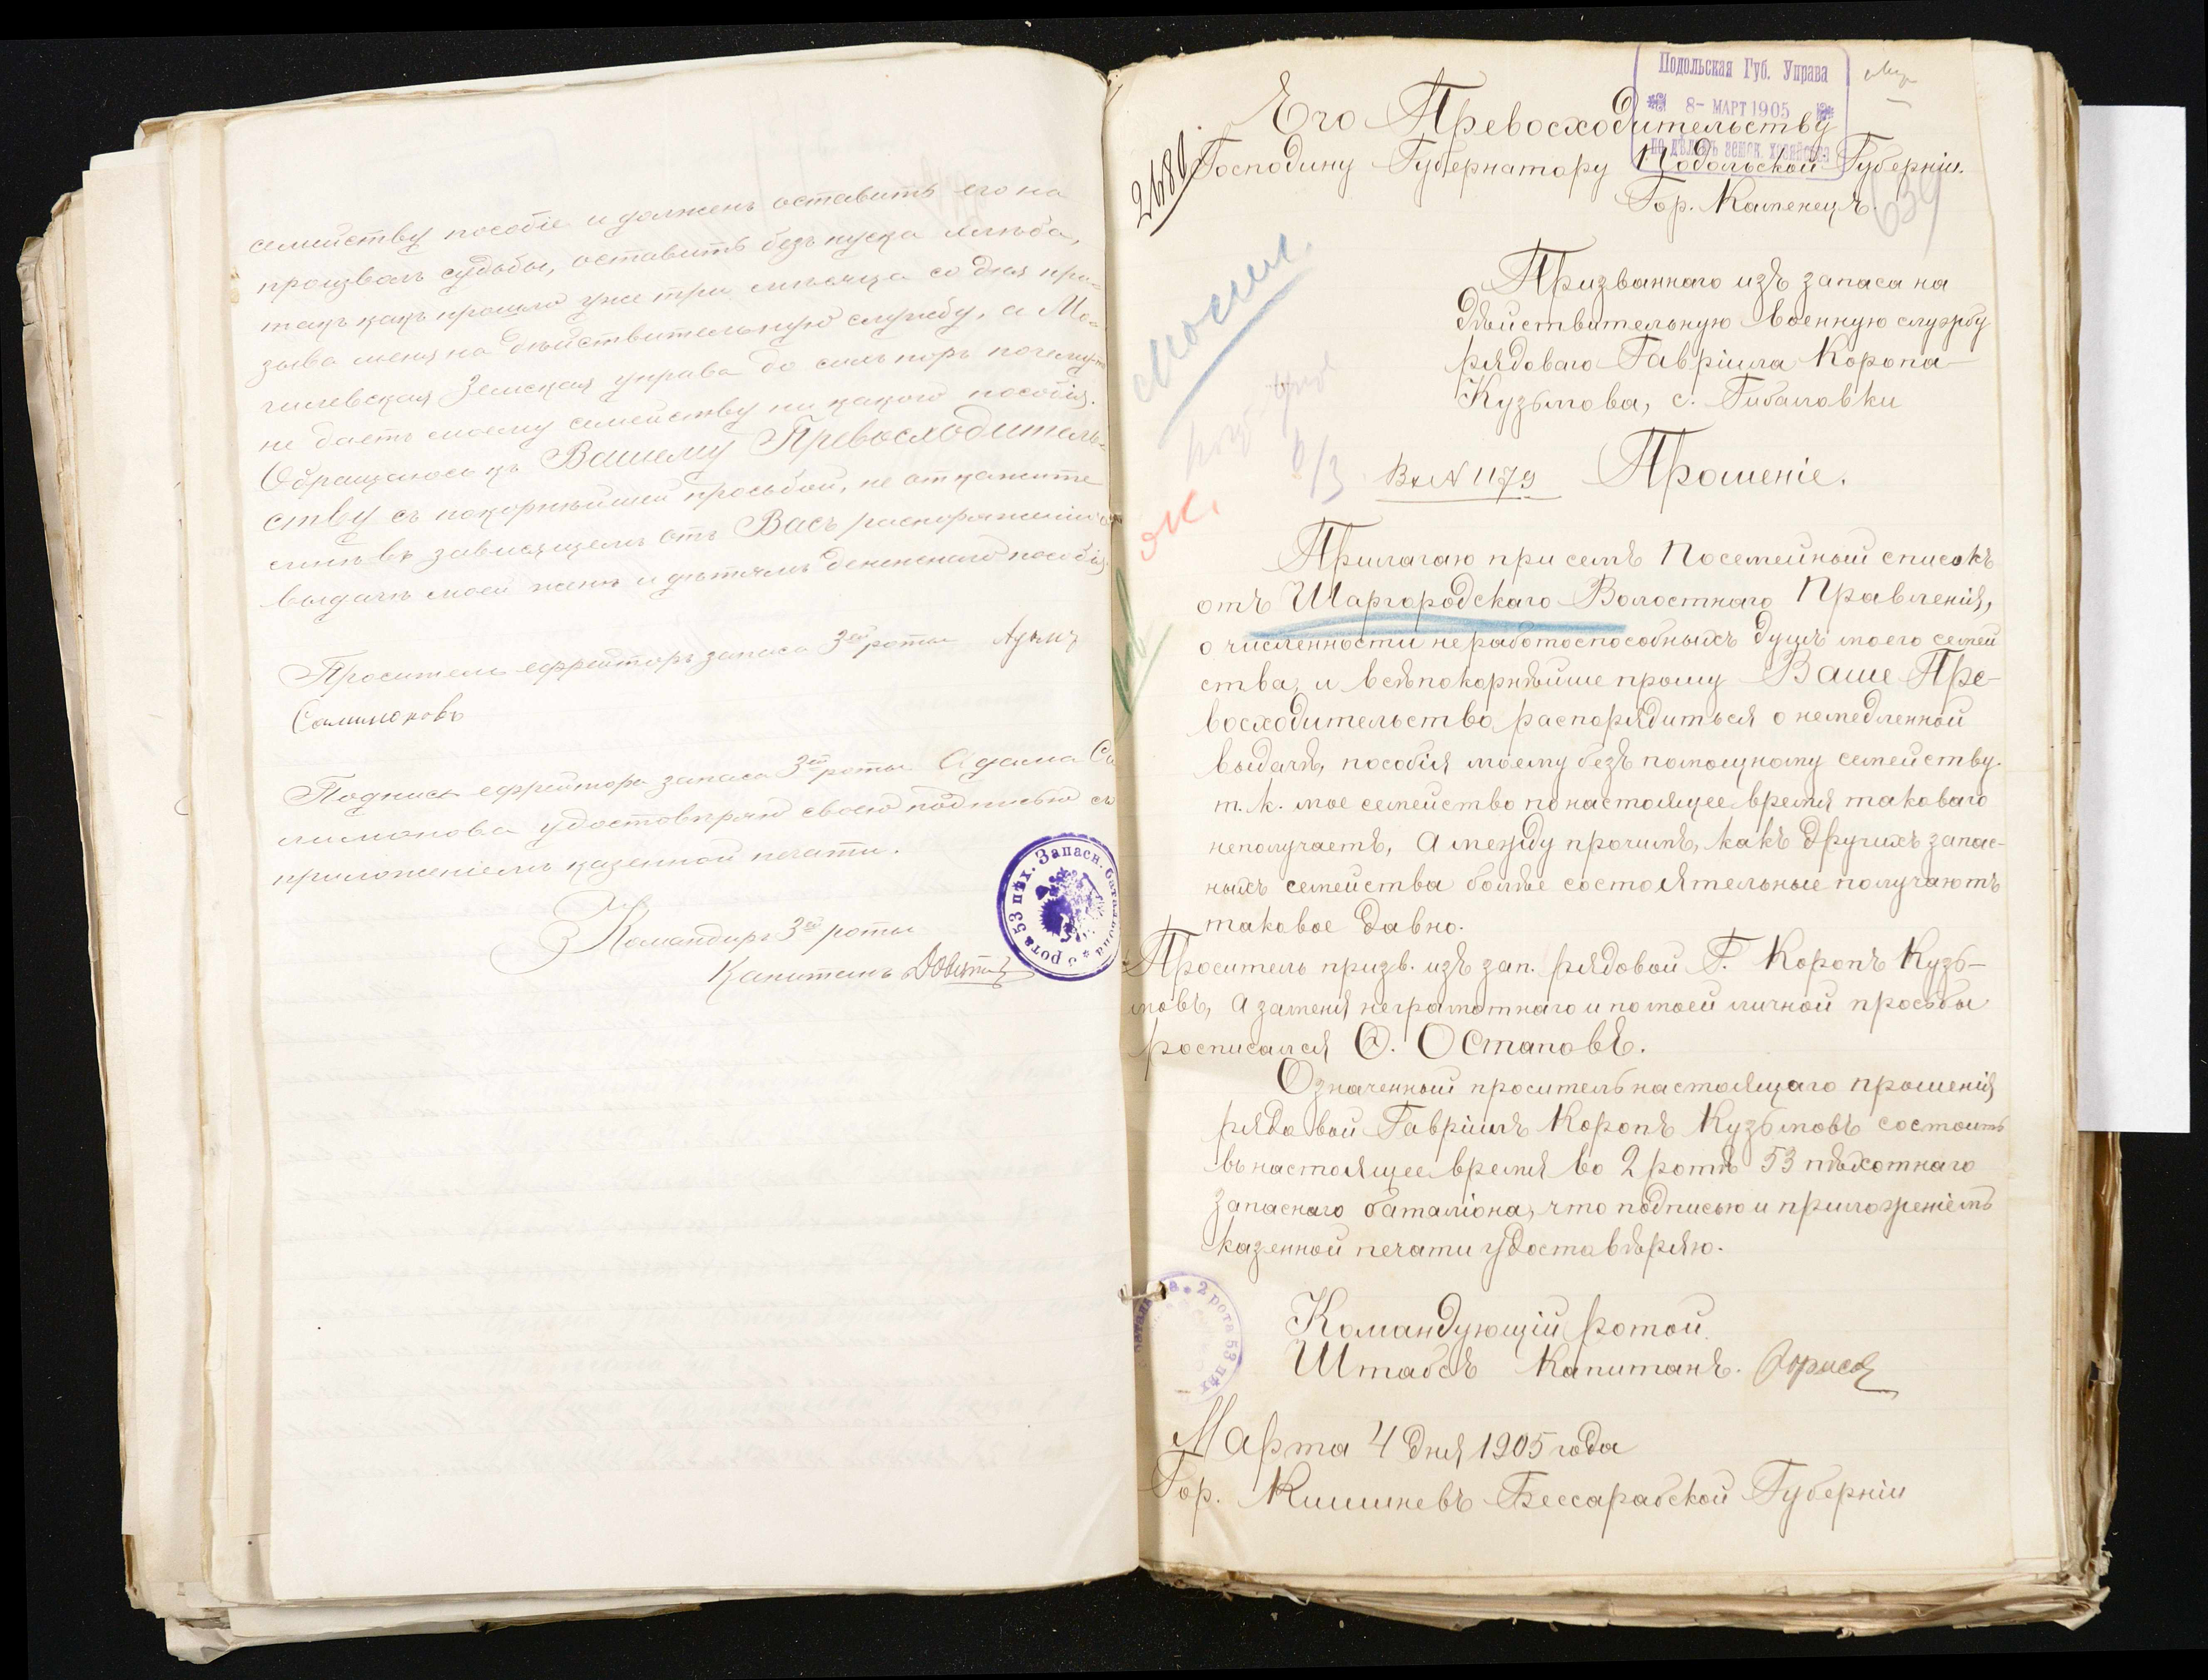 семейству пособіе и долженъ оставить его на
произволъ судьбы, оставить безъ куска хлѣба,
такъ какъ прошло уже три мѣсяца со дня при-
зыва меня на дѣйствительную службу, а Мо-
гилевская Земская управа до сихъ поръ почему то
не даетъ моему семейству ни какого пособія.
Обращаюсь къ Вашему Превосходитель-
ству съ покорнѣйшей просьбой, не откажите
мнѣ въ зависящемъ отъ Васъ распоряженіи
выдачѣ моей женѣ и дѣтямъ денежнаго пособія
Проситель ефрейторъ запаса 3ей роты Адамъ
Салимоновъ
Подпись ефрейтора запаса 3ей роты Адама Са
лимонова удостовѣряю своею подписью съ
приложеніемъ казенной печати.
Командиръ 3ей роты
Капитанъ
3 рота 53 пѣх. Запасн. баталіона
Подольская Губ. Управа
8- МАРТ 1905
по дѣламъ земск. хозяйства
Его Превосходительству
Господину Губернатору Подольской Губерніи.
Гор. Каменецъ.
2680.
639
Призваннаго изъ запаса на
дѣйствительную военную службу
рядоваго Гавріила Коропа
Кузьмова, с. Гибаловки
Могил.
8/3
Вх № 1179 Прошеніе.
Прилагаю при семъ Посемейный списокъ
отъ Шаргородскаго Волостнаго Правленія,
о численности неработоспособныхъ душъ моего семей
ства, и всѣпокорнѣйше прошу Ваше Пре-
восходительство распорядиться о немедленной
выдачѣ, пособія моему безъ помощному семейству.
т. к. мое семейство по настоящее время таковаго
неполучаетъ, а между прочимъ, какъ другихъ запас-
ныхъ семейства болѣе состоятельные получаютъ
таковое давно.
Проситель призв. изъ зап. рядовой Г. Коропъ Кузь-
мовъ, а заменя неграмотнаго и по моей личной просьбы
росписался Ѳ. Остаповъ.
Означенный проситель настоящаго прошенія
рядовой Гавріилъ Коропъ Кузьмовъ состоитъ
въ настоящее время во 2 ротѣ 53 пѣхотнаго
запаснаго баталіона, что подписью и приложеніемъ
казенной печати удоставѣряю.
2 рота 53 пѣх
Командующій ротой
Штабсъ Капитанъ.
Марта 4 дня 1905 года
Гор. Кишиневъ Бессарабской Губерніи